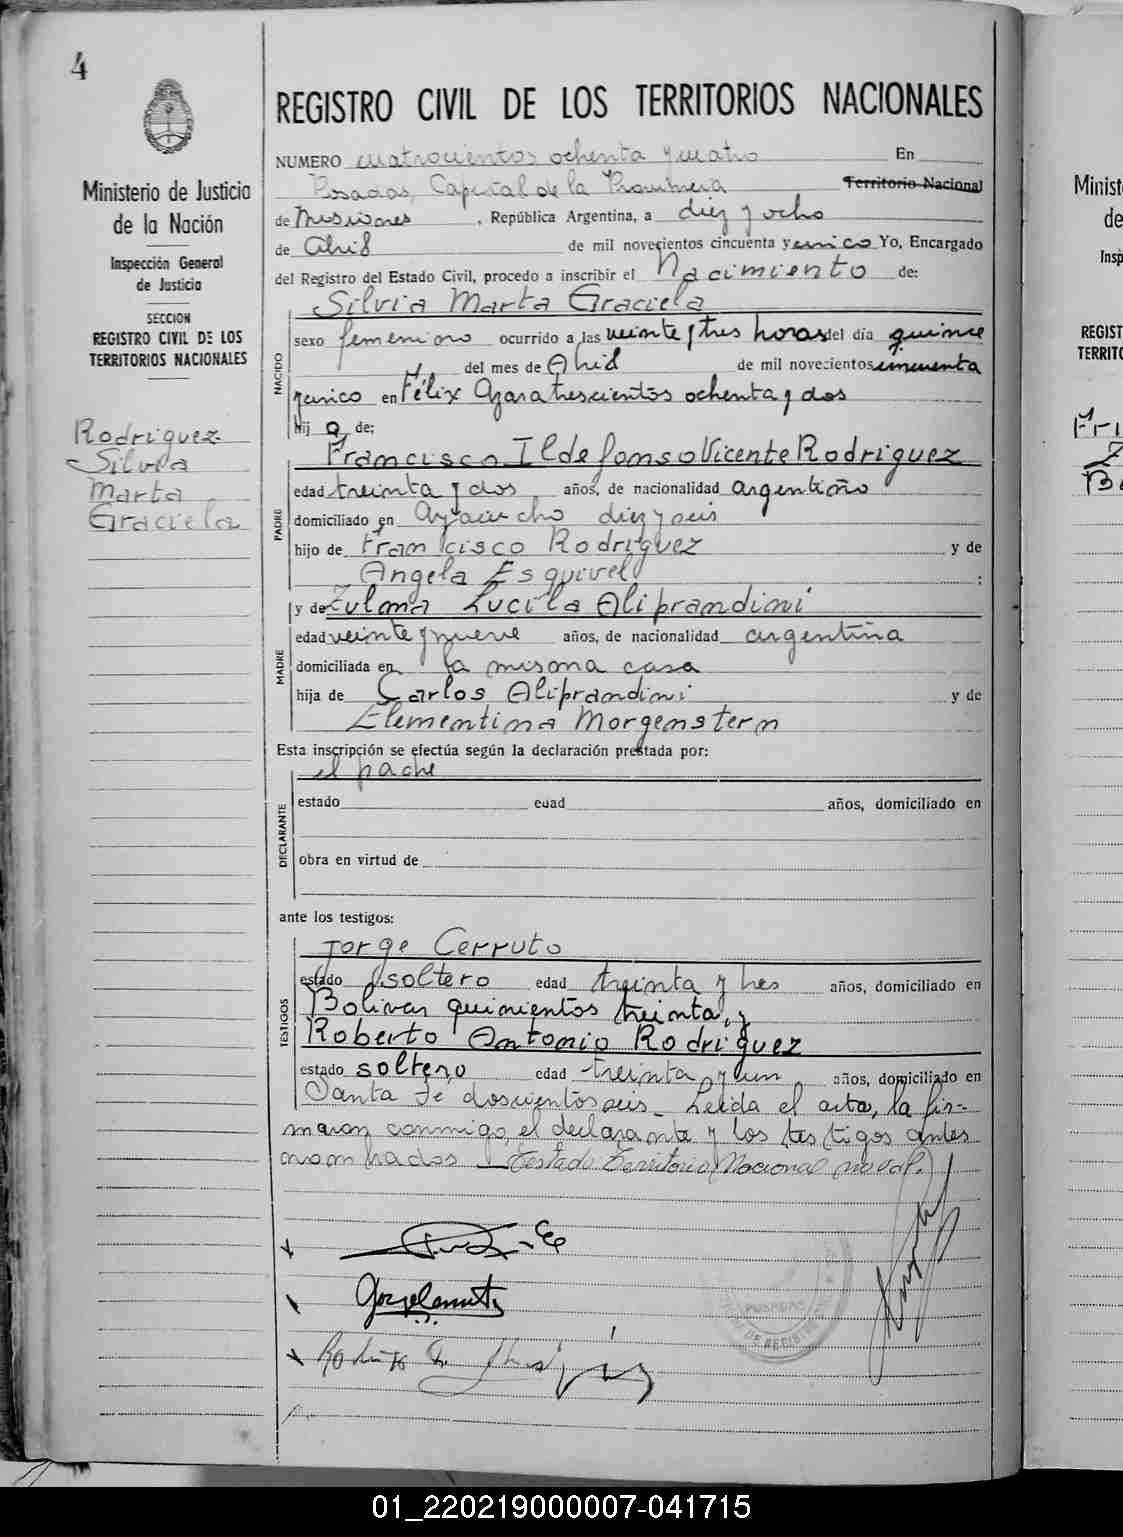 4
Ministerio de Justicia
de la Nación
Inspección General
de Justicia
SECCION
REGISTRO CIVIL DE LOS
TERRITORIOS NACIONALES
Rodriguez
Silvia
Marta
Graciela
REGISTRO CIVIL DE LOS TERRITORIOS NACIONALES
NUMERO cuatrocientos ochenta y cuatro En
Posadas, Capital de la Provincia Territorio Nacional
de Misiones, República Argentina, a diez y ocho
de Abril de mil novecientos cincuenta y cinco Yo, Encargado
del Registro del Estado Civil, procedo a inscribir el Nacimiento de:
Silvia Marta Graciela
NACIDO
sexo femenino ocurrido a las veinte y tres horas del día quince
del mes de Abril de mil novecientos cincuenta
y cinco en Félix Azara trescientos ochenta y dos
hij a de:
Francisco Ildefonso Vicente Rodriguez
PADRE
edad treinta y dos años, de nacionalidad argentino
domiciliado en Ayacucho diez y seis
hijo de Francisco Rodriguez y de
Angela Esquivel ;
y de Zulma Lucila Aliprandini
MADRE
edad veinte y nueve años, de nacionalidad argentina
domiciliada en la misma casa
hija de Carlos Aliprandini y de
Clementina Morgenstern
Esta inscripción se efectúa según la declaración prestada por:
el padre
DECLARANTE
estado edad años, domiciliado en
obra en virtud de
ante los testigos:
Jorge Cerruto
TESTIGOS
estado soltero edad treinta y tres años, domiciliado en
Bolivar quinientos treinta, y
Roberto Antonio Rodriguez
estado soltero edad treinta y un años, domiciliado en
Santa Fe doscientos seis_ Leida el acta, la fir-
maron conmigo, el declarante y los testigos antes
nombrados _ Testado Territorio Nacional no val.
POSADAS
DE REGISTRO
Minist
de
Insp
REGIST
TERRITO
01_220219000007-041715